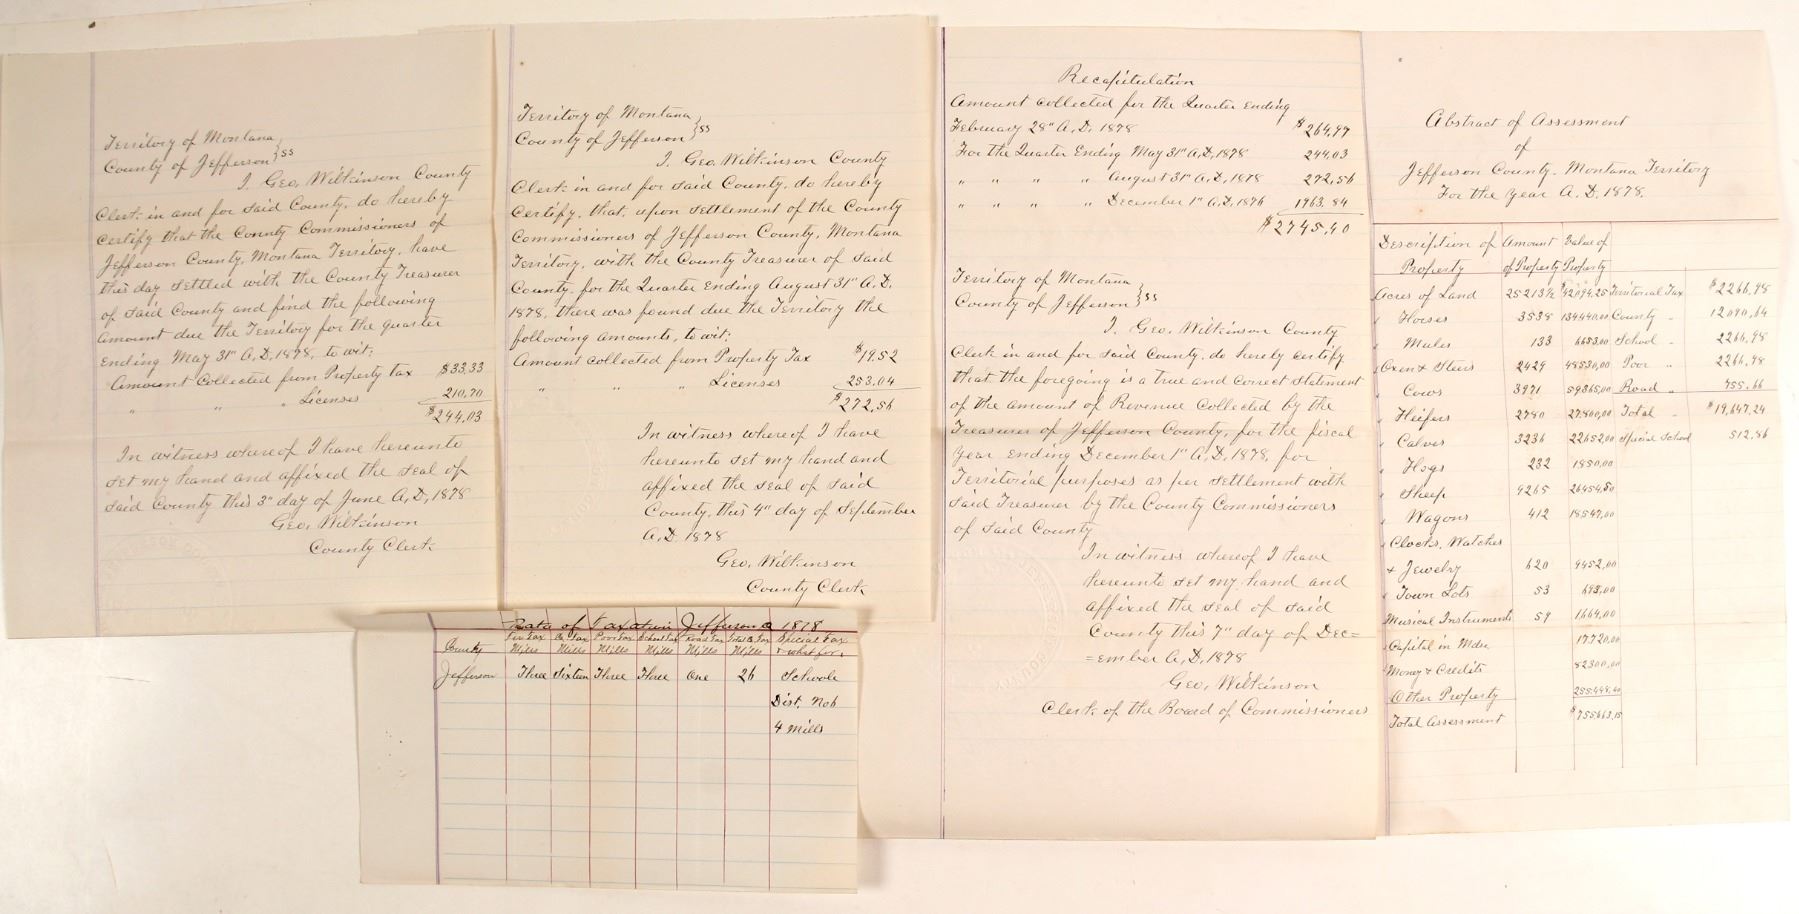 Territory of Montana
County of Jefferson } ss
I. Geo, Wilkinson County
Clerk in and for said County, do hereby
certify that the County Commissioners of
Jefferson County, Montana Territory, have
this day settled with the County Treasurer
of said County and find the following
amount due the Territory for the quarter
Ending May 31st A,D,1878, to wit;
Amount Collected from Property tax $33,33
" " " Licenses 210,70
$244,03
In witness whereof I have hereunto
set my hand and affixed the seal of
said County this 3" day of June A,D, 1878
Geo, Wilkinson
County Clerk
Territory of Montana
County of Jefferson } ss
I. Geo. Wilkinson County
Clerk in and for said County, do hereby
certify, that, upon settlement of the County
Commissioners of Jefferson County, Montana
Territory, with the County Treasurer of said
County for the Quarter Ending August 31st A,D,
1878, there was found due the Territory the
following amounts, to wit;
Amount collected from Property Tax $19.52
" " " Licenses 253,04
$272,56
In witness whereof I have
hereunto set my hand and
affixed the seal of said
County, this 4" day of September
A,D. 1878
Geo, Wilkinson
County Clerk
Recapitulation
Amount collected for the Quarter Ending
February 28" A,D, 1878 $264,97
For the Quarter Ending May 31st A,D, 1878 244,03
" " " " August 31st A,D, 1878 272,56
" " " " December 1st A,D, 1878 1963,84
$2745,40
Territory of Montana
County of Jefferson } ss
I. Geo, Wilkinson County
Clerk in and for said County, do hereby certify
that the foregoing is a true and correct statement
of the amount of Revenue collected by the
Treasurer of Jefferson County, for the fiscal
year ending December 1st A,D, 1878, for
Territorial purposes as per settlement with
said Treasurer by the County Commissioners
of said County
In witness whereof I have
hereunto set my hand and
affixed the seal of said
County this 7" day of Dec=
=ember A,D, 1878
Geo, Wilkinson
Clerk of the Board of Commissioners
Abstract of Assessment
of
Jefferson County. Montana Territory
For the year A.D. 1878.
Description of Property Amount of Property Value of Property
Acres of Land 25213½ $42,094.25 Territorial Tax $2266,98
" Horses 3538 134440,00 County " 12090,64
" Mules 133 6653,00 School " 2266,98
" Oxen & Steers 2429 48530,00 Poor " 2266,98
" Cows 3971 59365,00 Road " 755,66
" Heifers 2780 27800,00 Total " $19,647,24
" Calves 3236 22652,00 Special School 512,86
" Hogs 232 1850,00
" Sheep 9265 26454,50
" Wagons 412 18547,00
" Clocks, Watches
& Jewelry 620 9452,00
" Town Lots 53 693,00
Musical Instruments 59 1,664,00
Capital in Mdse 17,720,00
Money & Credits 82300,00
Other Property 255,449,40
Total Assessment $755663,15
Rate of Taxation Jefferson Co 1878
County Ter Tax Mills Co. Tax Mills Poor Tax Mills School Tax Mills Road Tax Mills Total Co. Tax Mills Special Tax & what for.
Jefferson Three Sixteen Three Three One 26 Schools
Dist. No 6
4 Mills